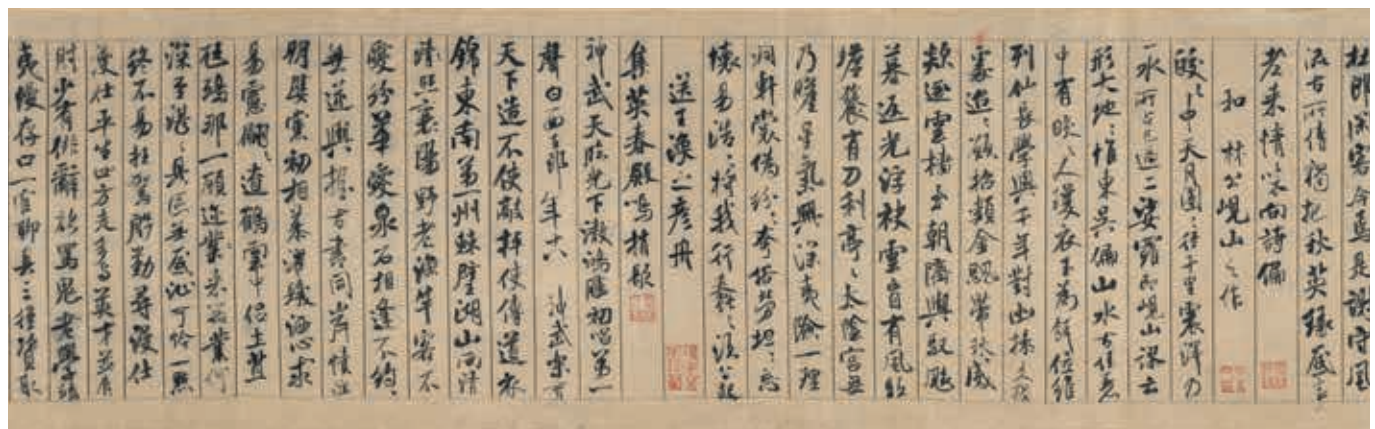 杜郎閑客今焉是謝守風
流古所傳獨把秋英緣底事
老來情味向詩偏
和林公峴山之作
皎皎中天月團團徑千里震澤乃
一水所占已過二娑羅即峴山謬云
形大地地惟東吳偏山水古佳麗
中有皎皎人瓊衣玉為餌位維
列仙長學與千年對幽操久獨
處迢迢願招類金颸帶秋威
欻逐雲檣至朝隮輿馭飆
暮返光浮袂雲育有風驂
蟾餐有刀利亭亭太陰宮無
乃瞻星氣興深夷險一理
洞軒裳偽紛紛夸俗勞坦坦忘
懷易浩浩將我行蠢蠢須公起
送王渙之彥舟
集英春殿鳴捎歇
神武天臨光下澈鴻臚初唱第一
聲白面玉郎年十八神武樂育
天下造不使敲枰使傳道衣
錦東南第一州棘璧湖山兩清
照襄陽野老漁竿客不
愛紛華愛泉石相逢不約約
無逆輿握古書同岸幘淫
朋嬖黨初相慕濯髮灑心求
易慮翩翩遼鶴雲中侶土苴
尪鴟那一顧邇來器業何
深至湛湛具區無底沚可憐一點
終不易枉駕殷勤尋漫仕
漫仕平生四方走多與英才並肩
肘少有俳辭能罵鬼老學鴟
夷漫存口一官聊具三徑資取